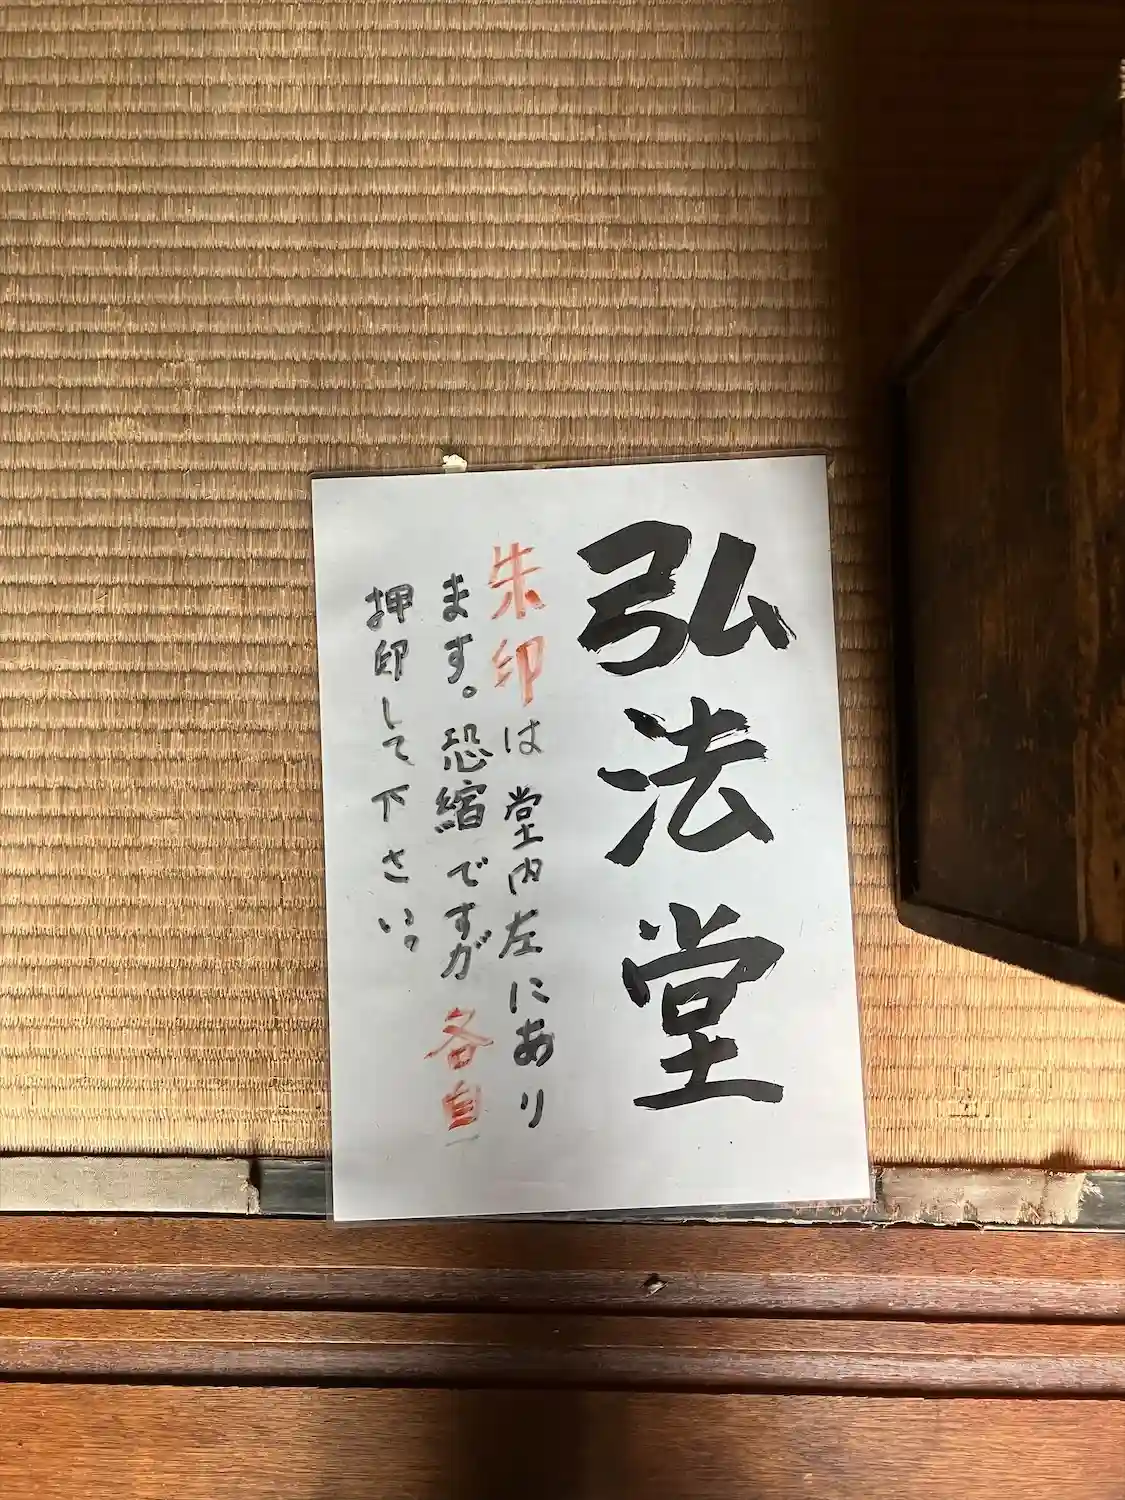 弘法堂
朱印は堂内左にあり
ます。恐縮ですが各自
押印して下さい。